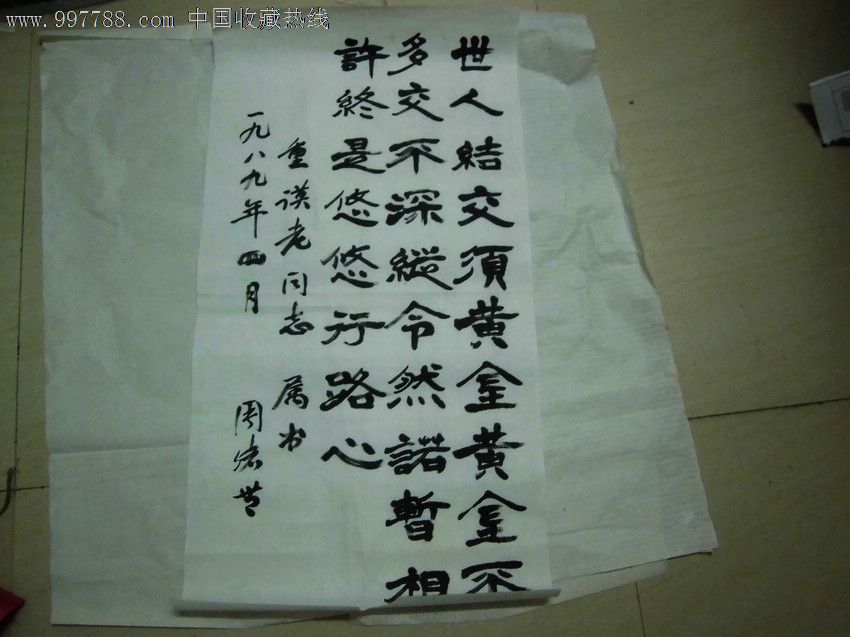 www.997788.com 中国收藏热线
世人結交須黄金黄金不
多交不深縱令然諾暫相
許終是悠悠行路心
重谟老同志 属书
一九八九年四月 周宏